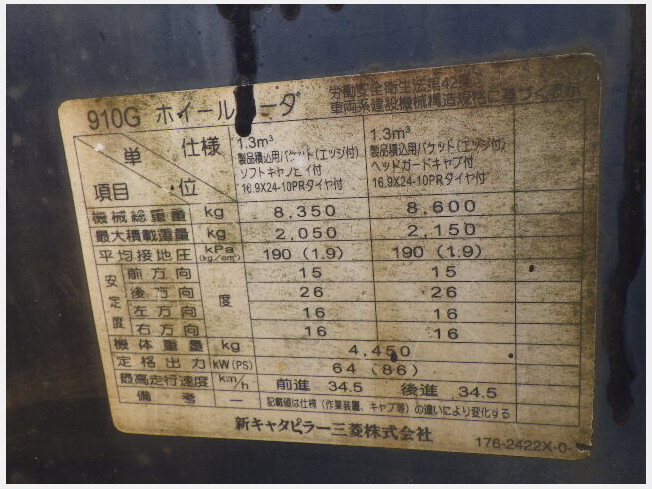 労働安全衛生法第42
910G ホイールローダ 車両系建設機械構造規格に基づく表示
単 仕様 1.3m³ 1.3m³
製品積込用バケット(エッジ付) 製品積込用バケット(エッジ付)
ソフトキャノピイ付 ヘッドガードキャブ付
項目 位 16.9X24-10PRタイヤ付 16.9X24-10PRタイヤ付
機械総重量 kg 8,350 8,600
最大積載重量 kg 2,050 2,150
平均接地圧 kPa (kg/cm²) 190 (1.9) 190 (1.9)
安定度 前方向 度 15 15
後方向 26 26
左方向 16 16
右方向 16 16
機体重量 kg 4,450
定格出力 kW(PS) 64 (86)
最高走行速度 km/h 前進 34.5 後進 34.5
備考 — 記載値は仕様(作業装置、キャブ等)の違いにより変化する
新キャタピラー三菱株式会社
176-2422X-0-